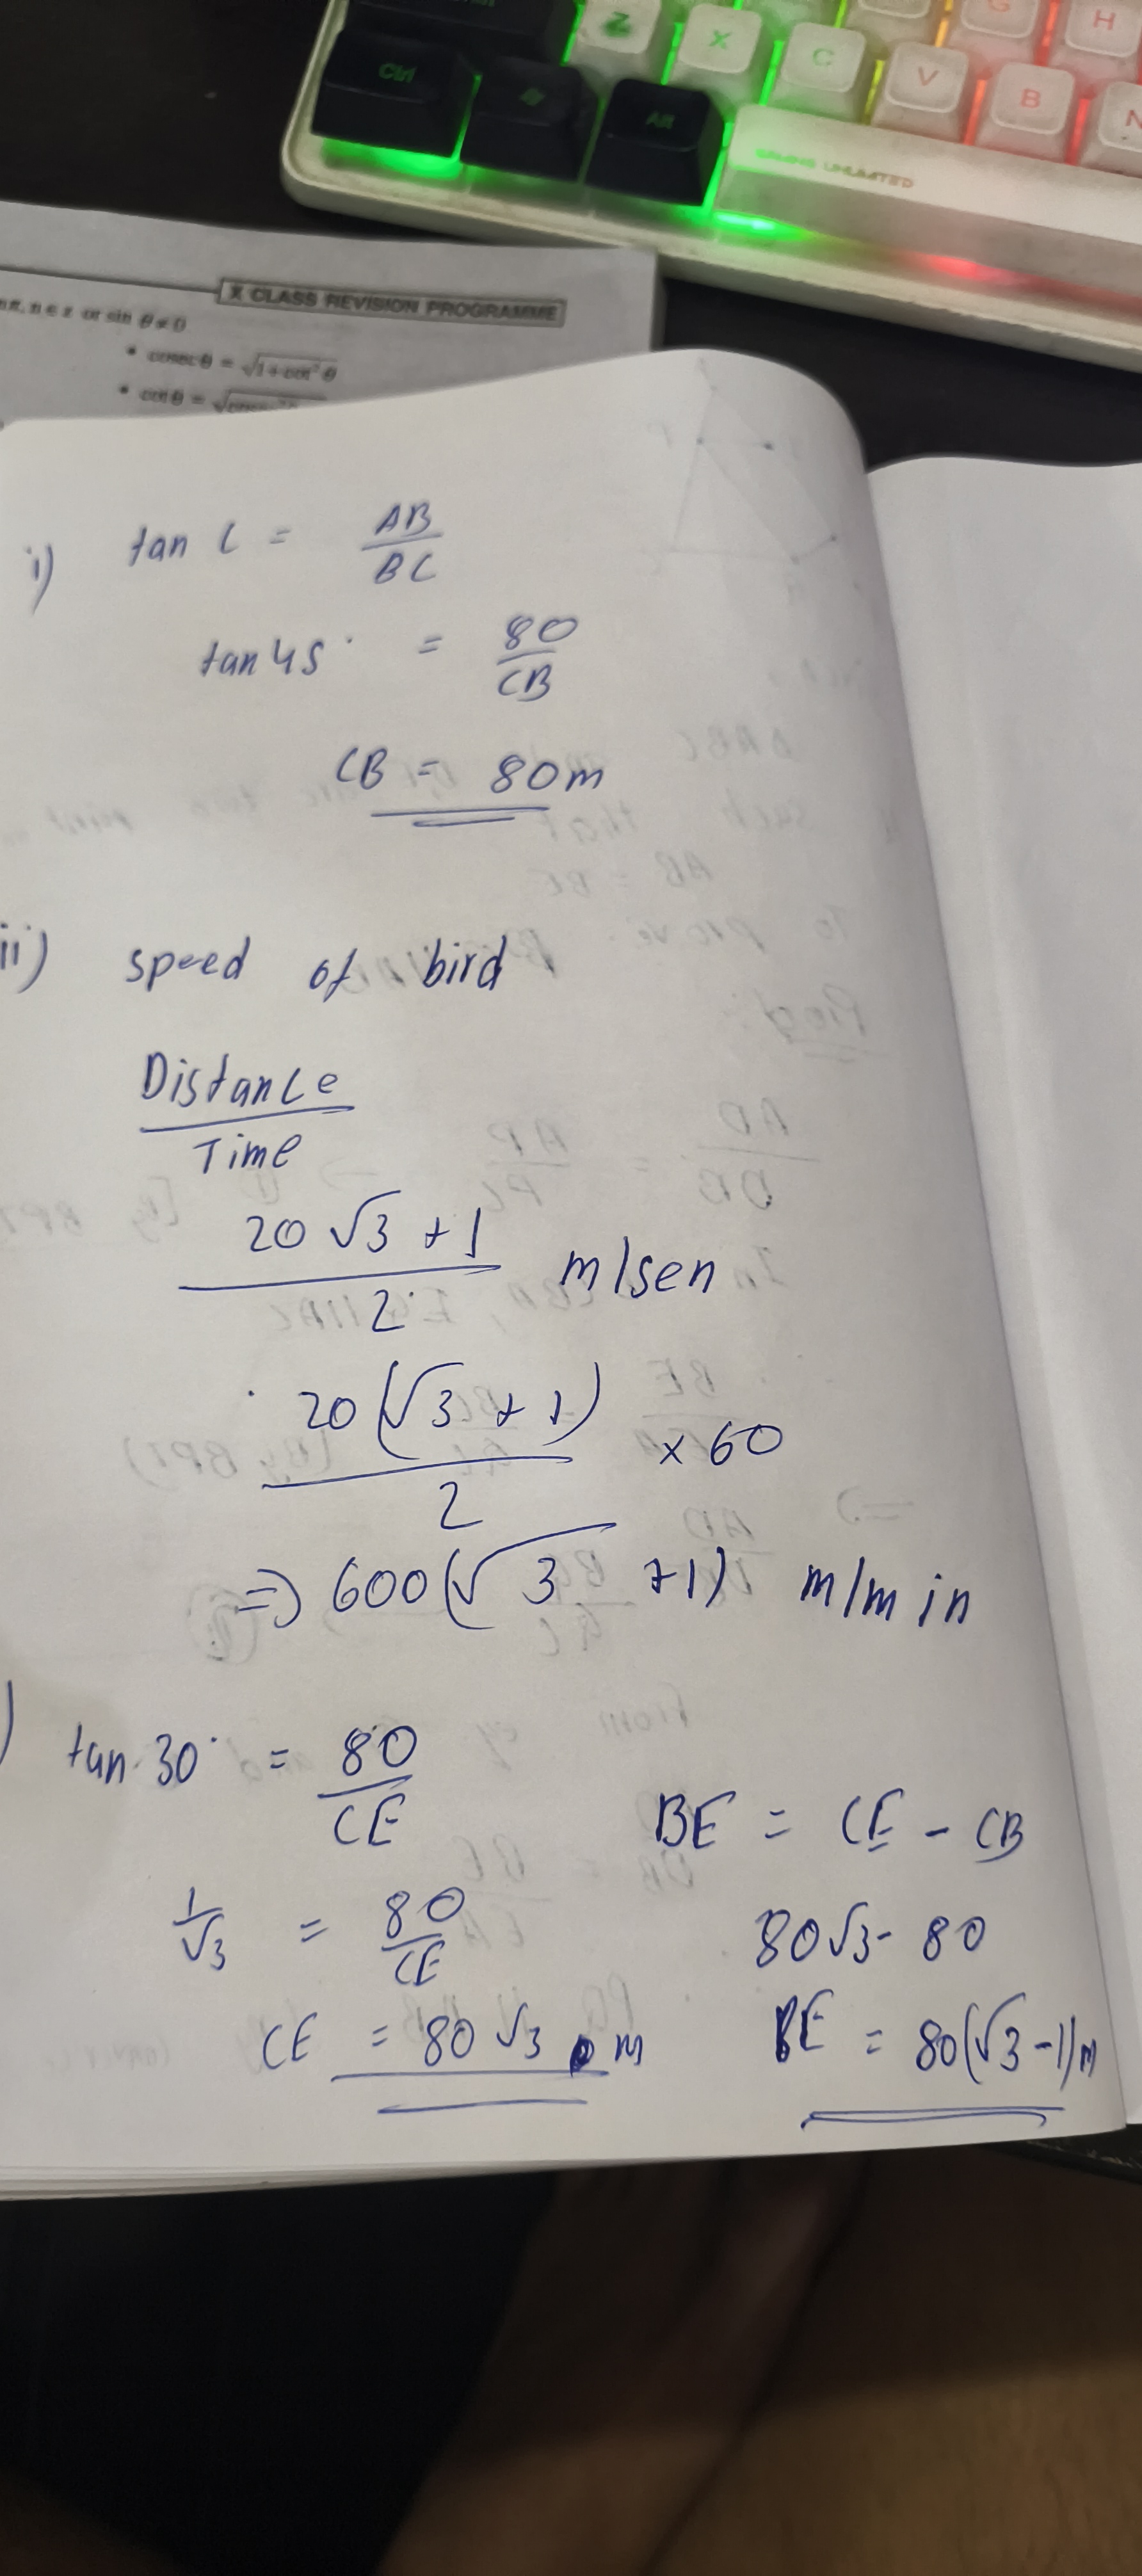 Z X C V B N G H
Ctrl Alt
GAMING UNLIMITED
X CLASS REVISION PROGRAMME
nπ, n ∈ z or sin θ ≠ 0
• cosec θ = √1+cot² θ
• cot θ =
i) tan C = AB/BC
tan 45° = 80/CB
CB = 80m
ii) speed of bird
Distance/Time
20√3+1/2 m/sen
20(√3+1)/2 × 60
=> 600(√3+1) m/min
) tan 30° = 80/CE
1/√3 = 80/CE
CE = 80√3 m
BE = CE - CB
80√3 - 80
BE = 80(√3-1)m